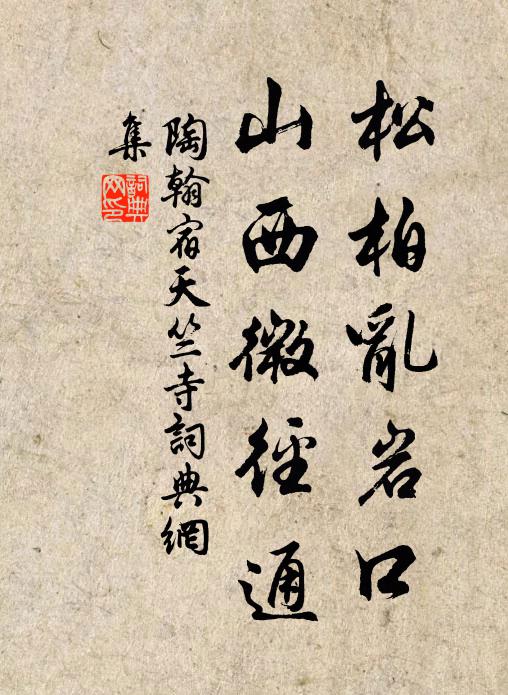 松柏亂岩口
山西微徑通
陶翰宿天竺寺詞典網
集
詞典
网印